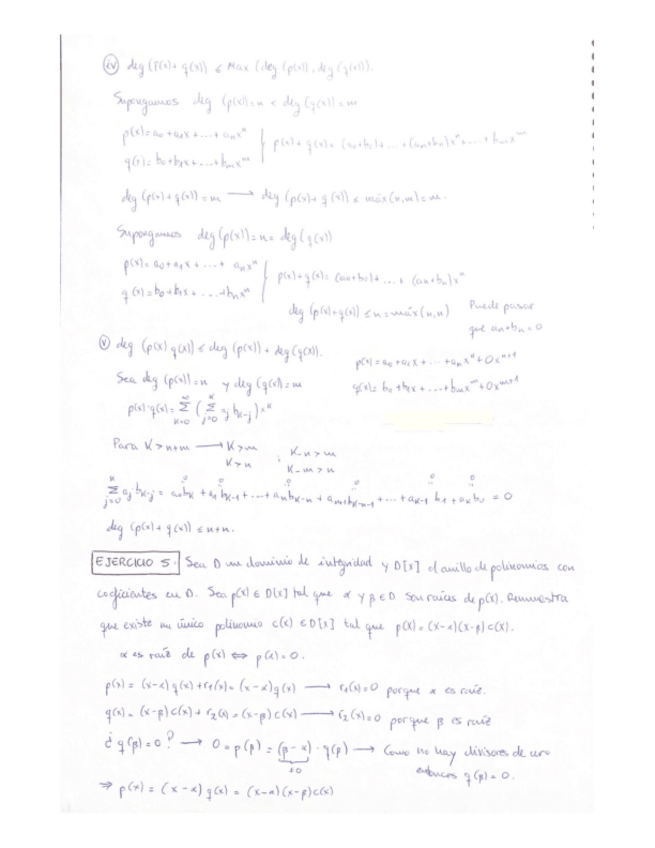 iv) deg (P(x)+ q(x)) ≤ Max (deg (p(x)), deg (q(x))).
Supongamos deg (p(x))=n < deg (q(x))=m
p(x)=a₀+a₁x+...+aₙxⁿ
q(x)=b₀+b₁x+...+bₘxᵐ
p(x)+q(x)= (a₀+b₀)+...+(aₙ+bₙ)xⁿ+...+bₘxᵐ
deg (p(x)+q(x))=m → deg (p(x)+q(x)) ≤ máx(n,m)=m.
Supongamos deg(p(x))=n= deg(q(x))
p(x)=a₀+a₁x+...+ aₙxⁿ
q(x)=b₀+b₁x+...+bₙxⁿ
p(x)+q(x)= (a₀+b₀)+...+ (aₙ+bₙ)xⁿ
deg (p(x)+q(x)) ≤ n=máx(n,n)
Puede pasar
que aₙ+bₙ=0
v) deg (p(x) q(x)) ≤ deg (p(x)) + deg(q(x)).
p(x)=a₀+a₁x+...+aₙxⁿ+0xⁿ⁺¹
q(x)=b₀+b₁x+...+bₘxᵐ+0xᵐ⁺¹
Sea deg (p(x))=n y deg (q(x))=m
p(x)·q(x)= Σ (Σ aⱼ bₖ₋ⱼ) xᵏ
Para K>n+m → K>m ; K-n>m
K>n K-m>n
Σ aⱼbₖ₋ⱼ = a₀bₖ + a₁bₖ₋₁+...+aₙbₖ₋ₙ + aₙ₊₁bₖ₋ₙ₋₁+...+aₖ₋₁b₁+aₖb₀ = 0
deg (p(x)+q(x)) ≤ n+m.
EJERCICIO 5. Sea D un dominio de integridad y D[x] el anillo de polinomios con
coeficientes en D. Sea p(x) ∈ D[x] tal que α y β ∈ D son raíces de p(x). Demuestra
que existe un único polinomio c(x) ∈ D[x] tal que p(x)=(x-α)(x-β)c(x).
α es raíz de p(x) ⇔ p(α)=0.
p(x)= (x-α)q(x)+r₁(x)=(x-α)q(x) → r₁(x)=0 porque α es raíz.
q(x)= (x-β)c(x)+r₂(x)=(x-β)c(x) → r₂(x)=0 porque β es raíz
¿q(β)=0? → 0=p(β)=(β-α)·q(β) → Como no hay divisores de cero
≠0 entonces q(β)=0.
⇒ p(x)= (x-α)q(x)= (x-α)(x-β)c(x)